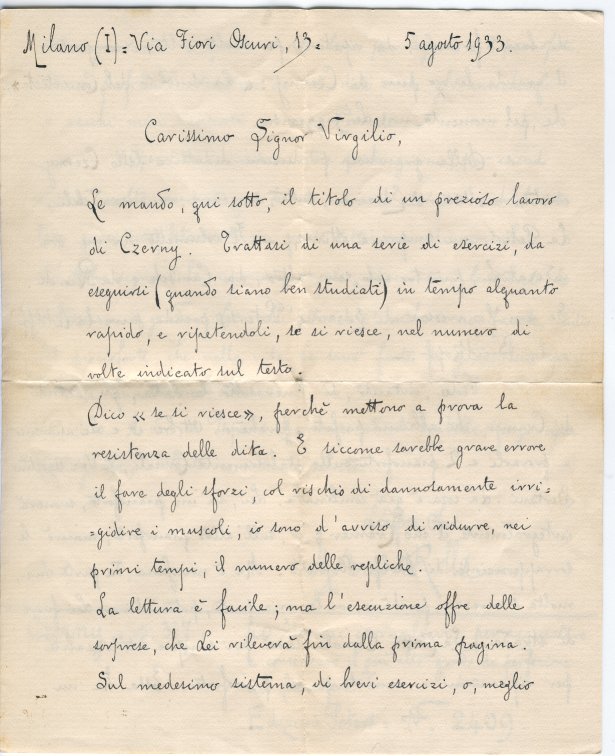 Milano (I) = Via Fiori Oscuri, 13 = 5 agosto 1933.
Carissimo Signor Virgilio,
Le mando, qui sotto, il titolo di un prezioso lavoro
di Czerny. Trattasi di una serie di esercizi, da
eseguirsi (quando siano ben studiati) in tempo alquanto
rapido, e ripetendoli, se si riesce, nel numero di
volte indicato sul testo.
Dico « se si riesce », perchè mettono a prova la
resistenza delle dita. E siccome sarebbe grave errore
il fare degli sforzi, col rischio di dannosamente irri=
=gidire i muscoli, io sono d'avviso di ridurre, nei
primi tempi, il numero delle repliche.
La lettura è facile; ma l'esecuzione offre delle
sorprese, che Lei rileverà fin dalla prima pagina.
Sul medesimo sistema, di brevi esercizi, o, meglio